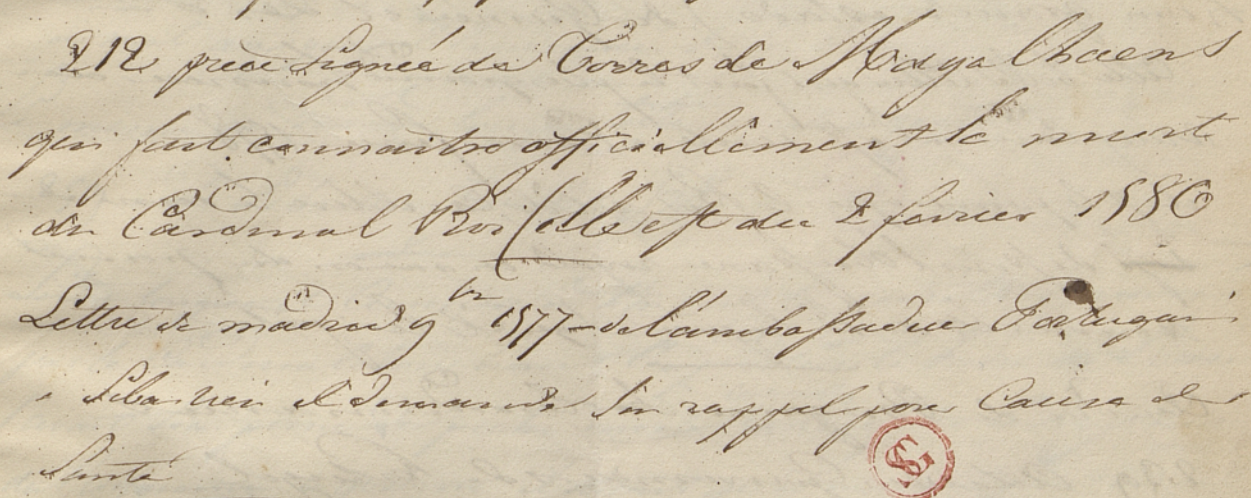 212 piece signée de Torres de Magalhaens
qui fait connaitre officiellement la mort
du Cardinal Roi (elle est du 2 fevrier 1580
Lettre de madrid 9bre 1577 - de l'ambassadeur Portugais
a Sebastien il demande son rappel pour Cause de
Santé
SG